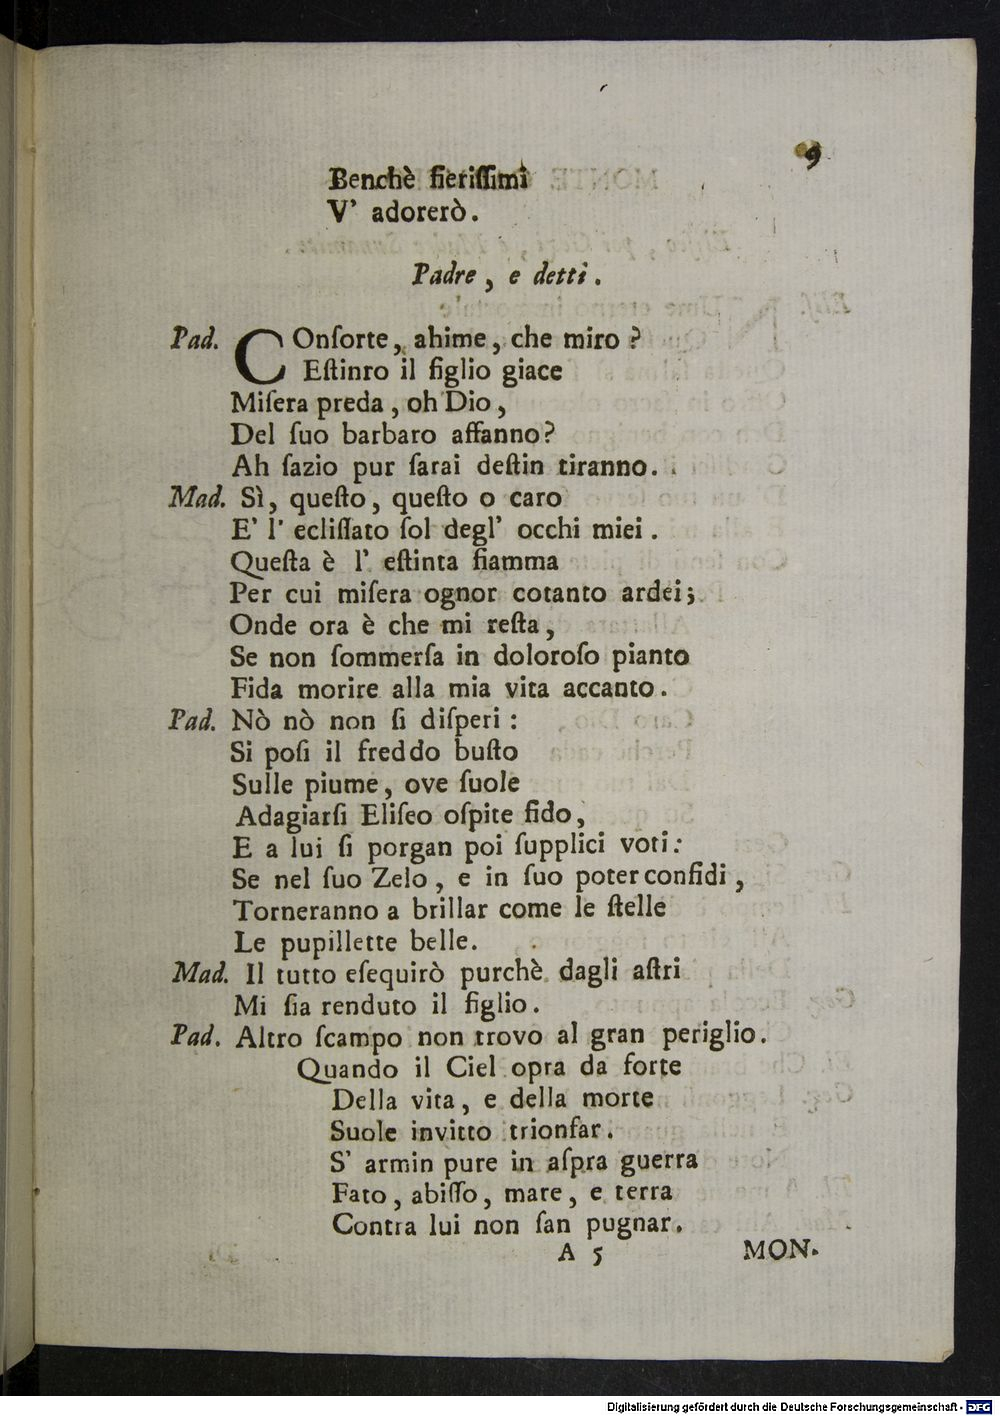 9
Benchè fieriſſimi
V' adorerò.
Padre, e detti.
Pad. COnſorte, ahime, che miro?
Eſtinro il figlio giace
Miſera preda, oh Dio,
Del ſuo barbaro affanno?
Ah ſazio pur ſarai deſtin tiranno.
Mad. Sì, queſto, queſto o caro
E' l' ecliſſato ſol degl' occhi miei.
Queſta è l' eſtinta fiamma
Per cui miſera ognor cotanto ardei;
Onde ora è che mi reſta,
Se non ſommerſa in doloroſo pianto
Fida morire alla mia vita accanto.
Pad. Nò nò non ſi diſperi:
Si poſi il freddo buſto
Sulle piume, ove ſuole
Adagiarſi Eliſeo oſpite fido,
E a lui ſi porgan poi ſupplici voti:
Se nel ſuo Zelo, e in ſuo poter confidi,
Torneranno a brillar come le ſtelle
Le pupillette belle.
Mad. Il tutto eſequirò purchè dagli aſtri
Mi ſia renduto il figlio.
Pad. Altro ſcampo non trovo al gran periglio.
Quando il Ciel opra da forte
Della vita, e della morte
Suole invitto trionfar.
S' armin pure in aſpra guerra
Fato, abiſſo, mare, e terra
Contra lui non ſan pugnar.
A 5 MON.
Digitalisierung gefördert durch die Deutsche Forschungsgemeinschaft - DFG